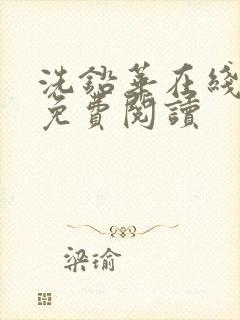 洗鉛華在綫
免費閱讀
梁瑜